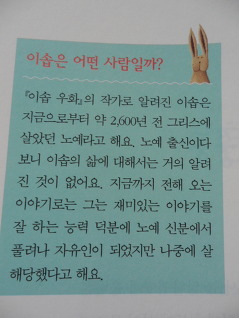 이솝은 어떤 사람일까?
『이솝 우화』의 작가로 알려진 이솝은
지금으로부터 약 2,600년 전 그리스에
살았던 노예라고 해요. 노예 출신이다
보니 이솝의 삶에 대해서는 거의 알려
진 것이 없어요. 지금까지 전해 오는
이야기로는 그는 재미있는 이야기를
잘 하는 능력 덕분에 노예 신분에서
풀려나 자유인이 되었지만 나중에 살
해당했다고 해요.